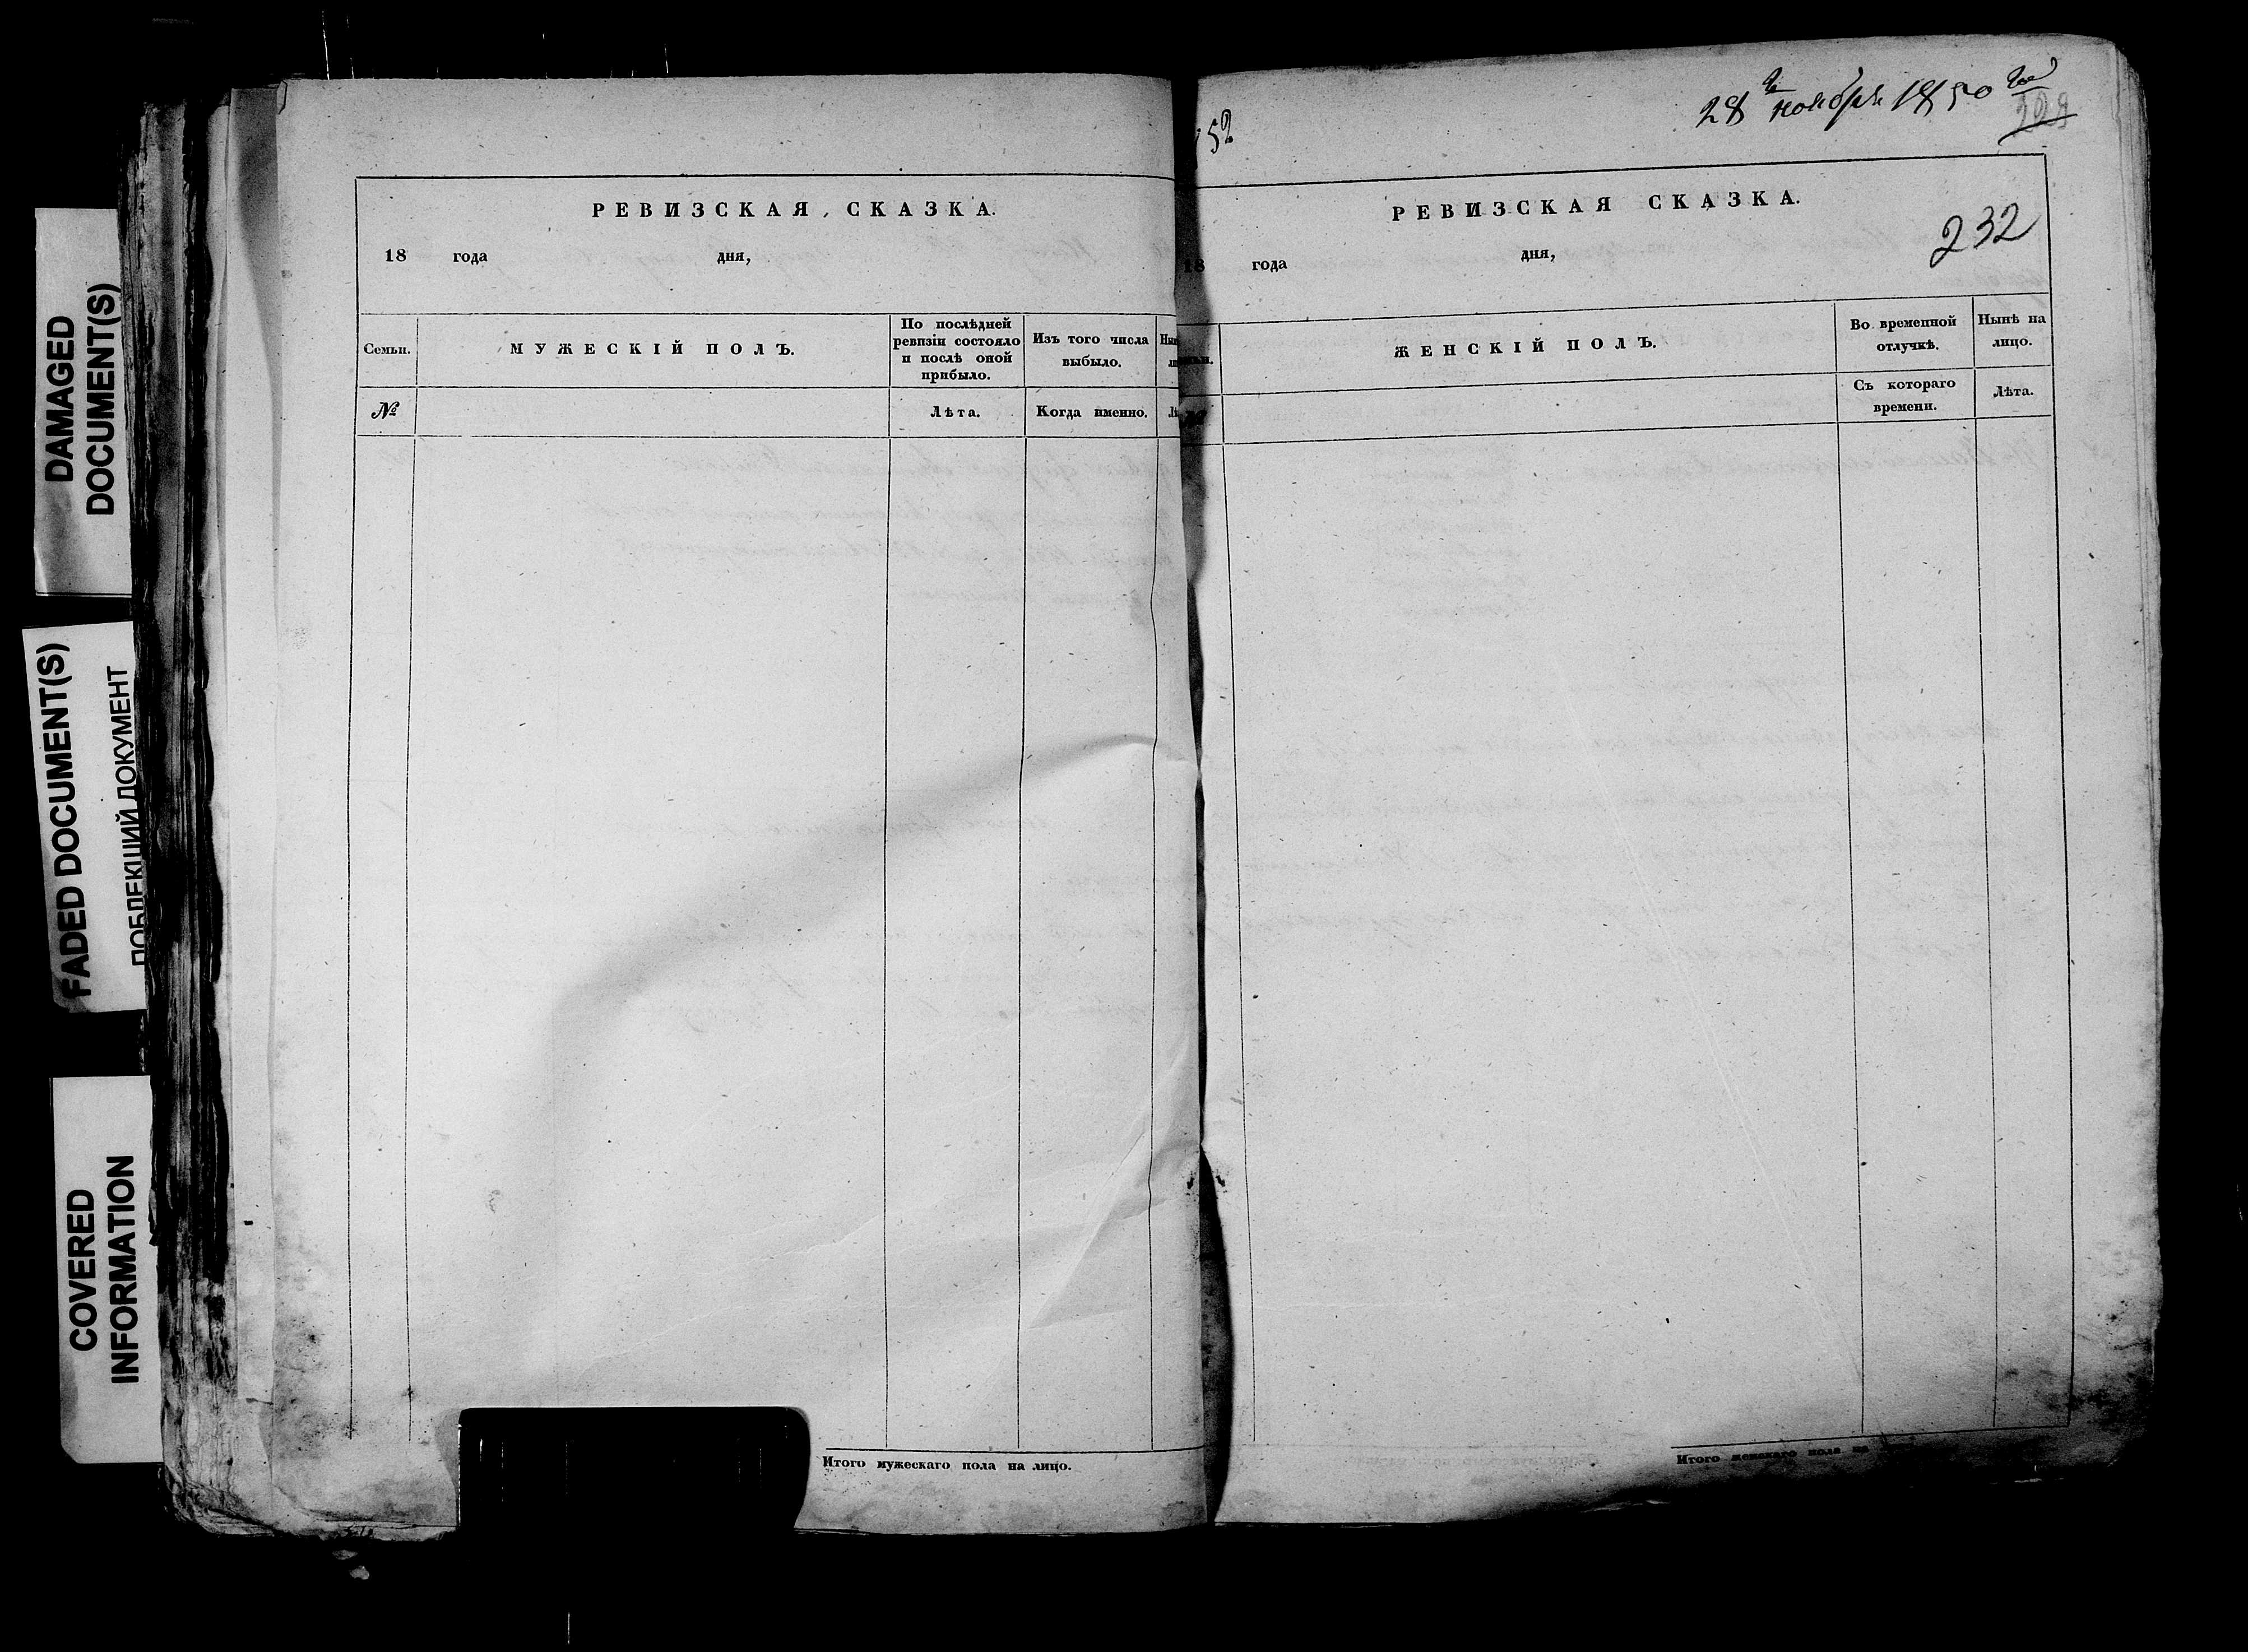 DAMAGED
DOCUMENT(S)
FADED DOCUMENT(S)
ПОБЛЕКШИЙ ДОКУМЕНТ
COVERED
INFORMATION
РЕВИЗСКАЯ СКАЗКА.
18 года дня,
Семьи.
МУЖЕСКІЙ ПОЛЪ.
По послѣдней
ревизіи состояло
и послѣ оной
прибыло.
Изъ того числа
выбыло.
№
Лѣта.
Когда именно.
Итого мужескаго пола на лицо.
52
28 ноября 1850
232
РЕВИЗСКАЯ СКАЗКА.
18 года дня,
ЖЕНСКІЙ ПОЛЪ.
Во временной
отлучкѣ.
Нынѣ на
лицо.
№
Съ котораго
времени.
Лѣта.
Итого женскаго пола на